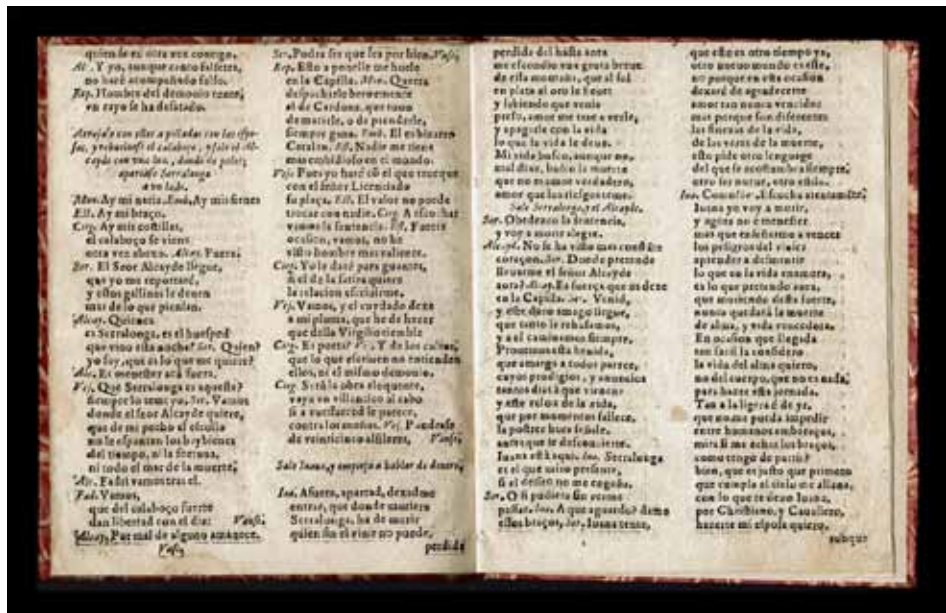 quien se es otra vez conmigo.
Al. Y yo, aunque canto falsetes,
no haré acompañado falso.
Rep. Hombre del demonio tente,
vn rayo se ha desatado.
Arrojala con ellos a puñadas con las espo-
sas, y rebuelvese el calabozo, y sale el Al-
cayde con vna luz, donde da palos,
apartase Serralonga
a vn lado.
Mon. Ay mi nariz. Fad. Ay mis sienes
Est. Ay mi braço.
Corg. Ay mis costillas,
el calaboço se viene
otra vez abaxo. Alcay. Fuera.
Ser. El Seor Alcayde llegue,
que yo me reportaré,
y estos gallinas le deuen
mas de lo que piensan.
Alcay. Quien es
es Serralonga, es el huesped
que vino esta noche? Ser. Quien?
yo soy, que es lo que me quiere?
Alc. Es menester acá fuera.
Vej. Que Serralonga es aqueste?
siempre lo temi yo. Ser. Vamos
donde el seor Alcayde quiere,
que de mi pecho al escollo
no le espantan los baybienes
del tiempo, ni la fortuna,
ni todo el mar de la muerte.
Alc. Fadri vamos tras el.
Fad. Vamos,
que del calaboço fuerte
dan libertad con el dia: Vanse.
Alcay. Por mal de alguno amanece.
Vase.
Ser. Podra ser que sea por bien. Vase.
Rep. Esto a ponerle me huele
en la Capilla. Mon. Querra
despacharle breuemente
el de Cardona, que tuuo
de matarle, o de prenderle,
siempre gana. Fad. El cabinzon
Catalan. Est. Nadie me tiene
mas embidioso en el mundo.
Vej. Pues yo haré cõ el que trueque
con el señor Licenciado
su plaça. Est. El valor no puede
trocar con nadie. Corg. A escuchar
vamos la sentencia. Est. Fuerte
ocasion, vamos, no he
visto hombre mas valiente.
Corg. Yo le daré para guantes,
si el de la satira quiere
la relacion escriuirme.
Vej. Vamos, y el cuydado dexe
a mi pluma, que he de hazer
que della Virgilio tiemble
Corg. Es poeta? Vej. Y de los cultos,
que lo que escriuen no entienden
ellos, ni el mismo demonio.
Corg. Será la obra eloquente,
vaya vn villancico al cabo
si a vuessarced le parece,
contra los moños. Vej. Pondrelo
de veinticinco alfileres. Vanse.
Sale Iuana, y empieça a hablar de dentro.
Iua. Afuera, apartad, dexadme
entrar, que donde estuuiere
Serralonga, ha de morir
quien sin el viuir no puede,
perdida
perdida del hasta aora
me escondio vna gruta breue
de essa montaña, que al sol
en plata el oro le beuen
y sabiendo que venia
preso, amor me trae a verle,
y apagarle con la vida
lo que la vida le deue.
Mi vida busco, aunque no,
mal dixe, busco la muerte
que no mamor verdadero,
amor que los riesgos teme.
Sale Serralonga, y el Alcayde.
Ser. Obedezco la sentencia,
y voy a morir alegre.
Alcayd. No se ha visto mas constãte
coraçon. Ser. Donde pretende
lleuarme el señor Alcayde
aora? Alcay. Es fuerça que os dexe
en la Capilla. Ser. Venid,
y este duro amago llegue,
que tanto le rehusamos,
y a el caminamos siempre.
Prouemos esta beuida,
que amarga a todos parece,
cuyos prodigios, y anuncios
tantos dias à que vienen
y este relox de la vida,
que por momentos fallece,
la postrer hora señale,
antes que se desconcierte.
Iuana està aqui. Iua. Serralonga
es el que miro presente,
si el deseo no me engaña.
Ser. O si pudiera sin verme
passar. Iua. A que aguardo? dame
essos braços, Ser. Iuana tente,
que este es otro tiempo ya,
otro nueuo mundo es este,
no porque en esta ocasion
dexaré de agradecerte
amor tan nunca vencido:
mas porque son diferentes
las finezas de la vida,
de las veras de la muerte,
esto pide otro lenguage
del que se acostumbra siempre,
otro ser natur, otro estilo.
Iua. Como? Ser. Escucha atentamẽte.
Iuana yo voy a morir,
y agora no è menester
mas que esfuerzome a vencer
los peligros del viuir:
aprender a desmentir
lo que en la vida enamora,
es lo que pretendo aora,
que muriendo desta suerte,
nunca quedarà la muerte
de alma, y vida vencedora.
En ocasion que llegada
tan facil la considero
la vida del alma quiero,
no del cuerpo, que no es nada,
para hazer esta jornada.
Tan a la ligera de yr,
que no me pueda impedir
entre humanos embaraços,
mira si me echas los braços,
como tengo de partir?
bien, que es justo que primero
que cumpla al cielo me allana,
con lo que te deuo Iuana,
por Christiano, y Cauallero,
hazerte mi esposa quiero,
aunque